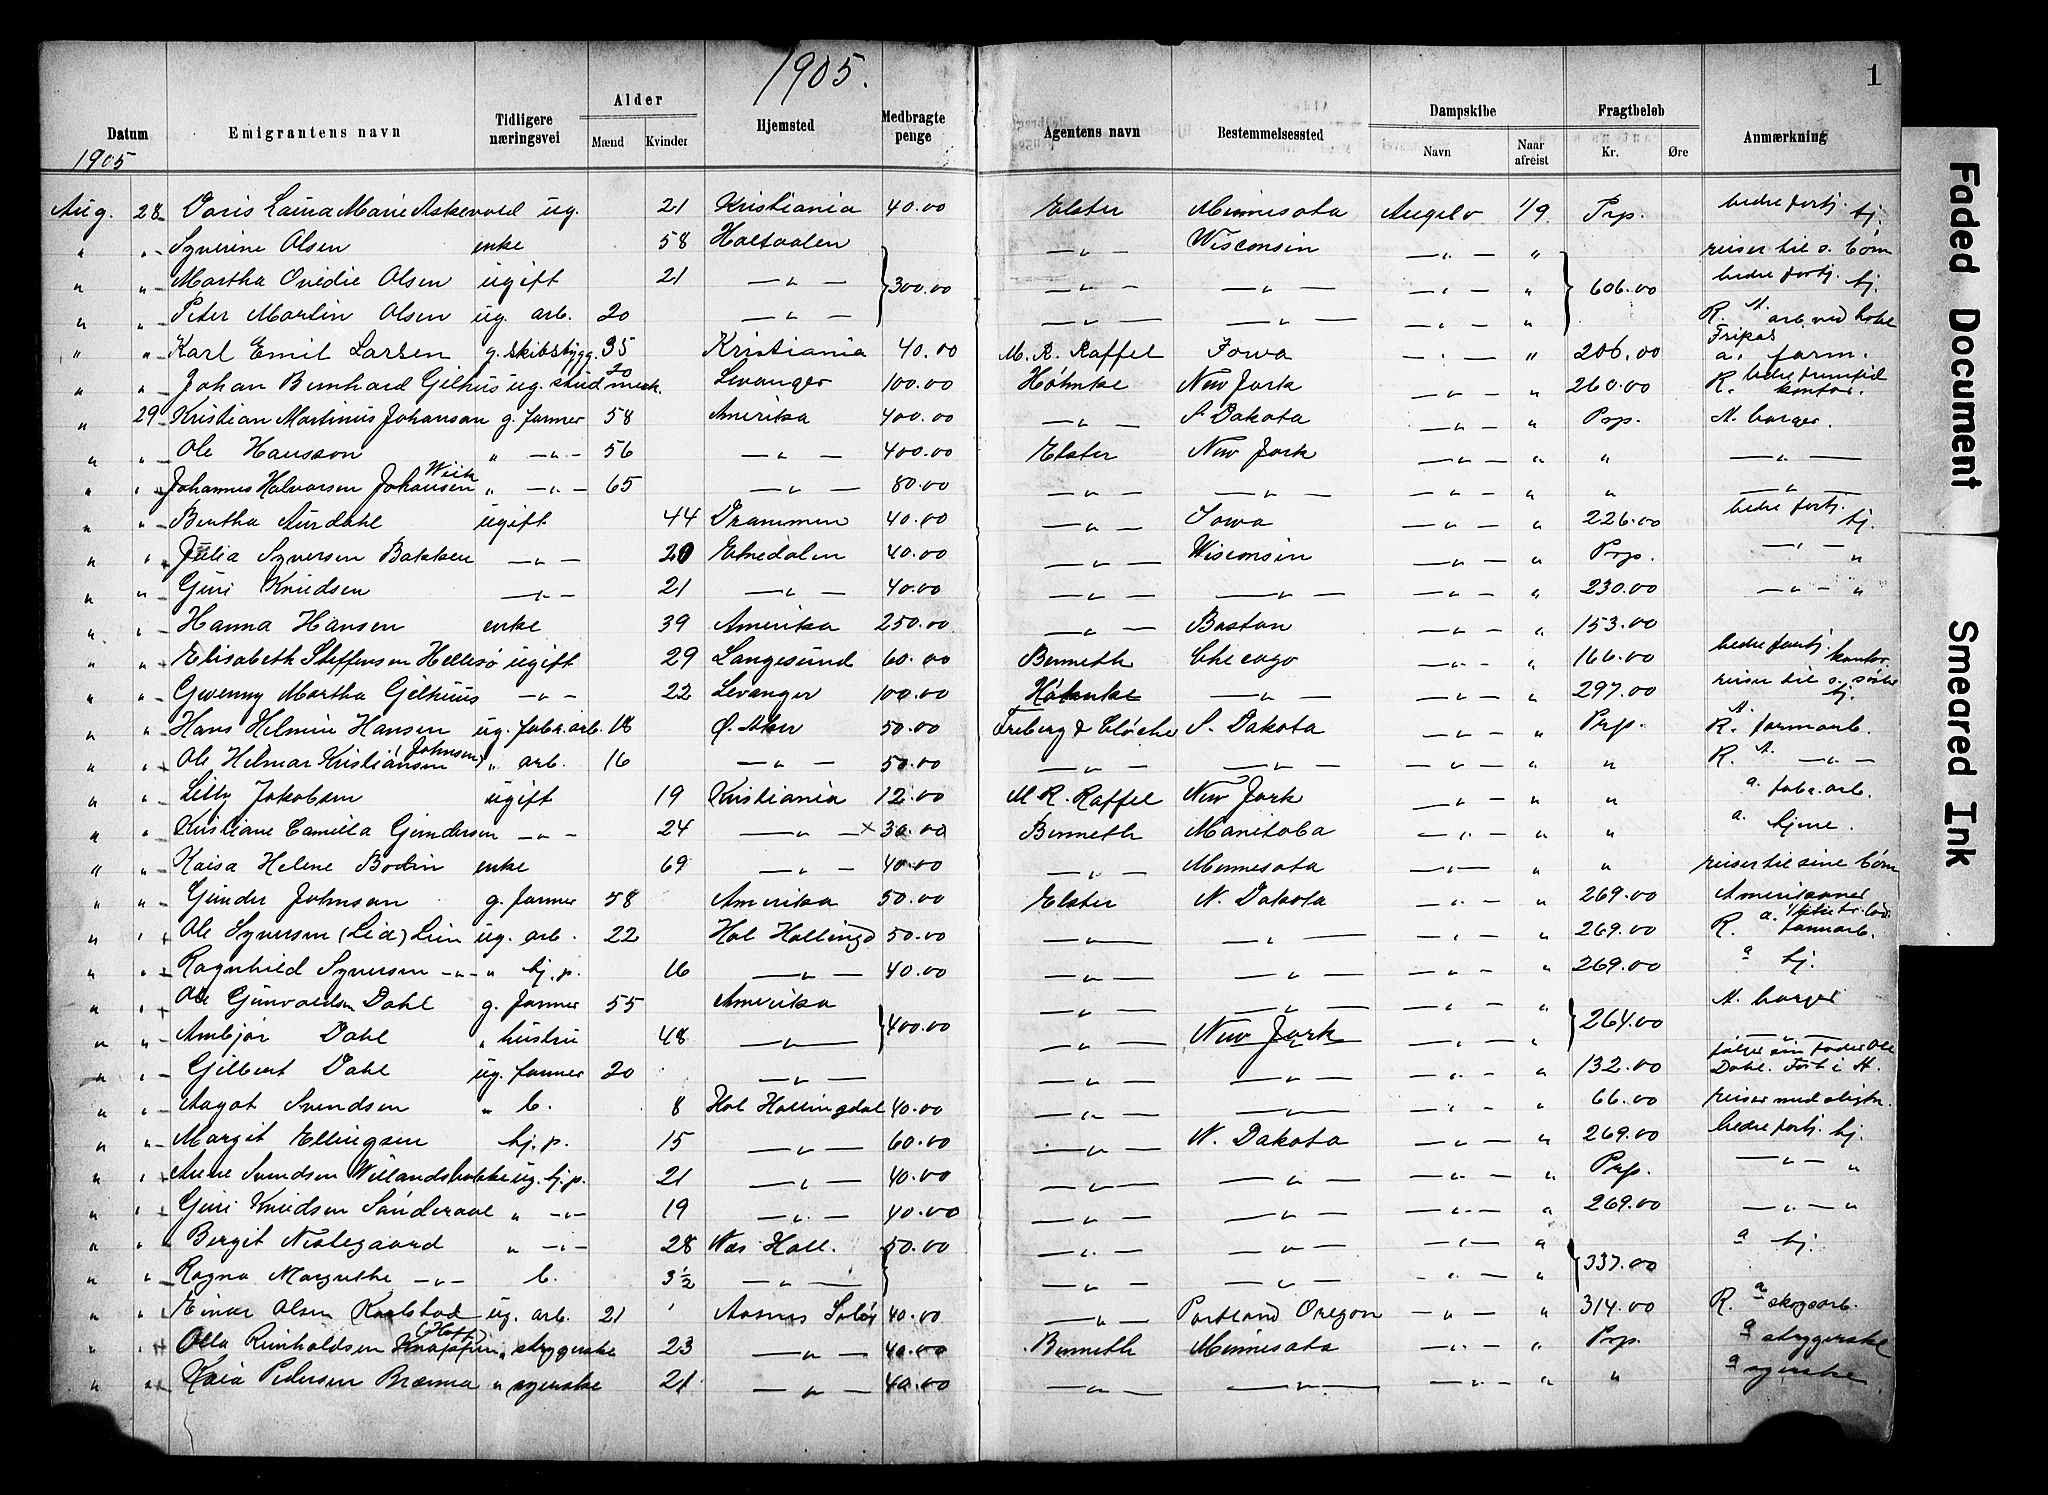 1905.
1
Datum Emigrantens navn Tidligere næringsvei Alder Mænd Kvinder Hjemsted Medbragte penge Agentens navn Bestemmelsessted Dampskibe Navn Naar afreist Fragtbeløb Kr. Øre Anmærkning
1905
Aug. 28 Doris Laura Marie Askevold ug. 21 Kristiania 40.00 Elster Minnesota Angelo 1/9 Prp. bedre fortj. tj.
" " Syverine Olsen enke 58 Holtaalen — " — Wisconsin — " — " reiser til s. børn
" " Martha Ovidie Olsen ugift 21 — " — } 300.00 — " — — " — — " — " } 606.00 bedre fortj. tj.
" " Peter Martin Olsen ug. arb. 20 — " — — " — — " — — " — " R. A. arb. ved hotel
" " Karl Emil Larsen g. skibsbygg. 35 Kristiania 40.00 M. R. Raffel Iowa — " — " 206.00 Fripas a. farm.
" " Johan Bernhard Gilhus ug. stud. mech. 20 Levanger 100.00 Høhnke New York — " — " 260.00 R. bedre fremtid kontor.
" 29 Kristian Martinus Johansan g. farmer 58 Amerika 400.00 — " — S. Dakota — " — " Prp. A. borger.
" " Ole Hansson " — " — 56 — " — 400.00 Elster New York — " — " " — " —
" " Johannes Halvorsen Johansen Wiik " — " — 65 — " — 80.00 — " — — " — — " — " " — " —
" " Bertha Aurdahl ugift 44 Drammen 40.00 — " — Iowa — " — " 226.00 bedre fortj. tj.
" " Julia Syversen Bakken — " — 20 Etnedalen 40.00 — " — Wisconsin — " — " Prp. — " — "
" " Guri Knudsen — " — 21 — " — 40.00 — " — — " — — " — " 230.00 — " — "
" " Hanna Hansen enke 39 Amerika 250.00 — " — Boston — " — " 153.00
" " Elisabeth Steffensen Hellesø ugift 29 Langesund 60.00 Benneth Chicago — " — " 166.00 bedre fortj. kontor.
" " Gwenny Martha Gilhuus — " — 22 Levanger 100.00 Høhnke — " — — " — " 297.00 reiser til s. søster tj.
" " Hans Helmin Hansen ug. fabr. arb. 18 Ø. Aker 50.00 Friberg & Cløche S. Dakota — " — " Prp. R. A. farmarb.
" " Ole Hilmar Kristiansen (Johnsen) " arb. 16 — " — 50.00 — " — — " — — " — " " R. A. — " —
" " Lilly Jakobsen ugift 19 Kristiania 12.00 M. R. Raffel New York — " — " " a. fabr. arb.
" " Kristiane Camilla Gundersen — " — 24 — " — × 30.00 Benneth Manitoba — " — " " a. tjene.
" " Kaisa Helene Bodin enke 69 — " — 40.00 — " — Minnesota — " — " " reiser til sine børn
" " Gunder Johnsen g. farmer 58 Amerika 50.00 Elster N. Dakota — " — " 269.00 Amerikaner
" " Ole Syversen (Lia) Lien ug. arb. 22 Hol Hallingd 50.00 — " — — " — — " — " 269.00 R. a. farmarb.
" " Ragnhild Syversen — " — " tj. p. 16 — " — 40.00 — " — — " — — " — " 269.00 a tj.
" " Ole Gunvaldsen Dahl g. farmer 55 Amerika } 400.00 — " — — " — — " — " } 264.00 A. borger
" " Ambjør Dahl " hustru 48 — " — — " — New York — " — " — " —
" " Gilbert Dahl ug. farmer 20 — " — — " — — " — — " — " 132.00 følger sin fader Ole Dahl. Født i A.
" " Aagot Svendsen " b. 8 Hol Hallingdal 40.00 — " — — " — — " — " 66.00 reiser med slegtn.
" " Margit Ellingsen tj. p. 15 — " — 60.00 — " — N. Dakota — " — " 269.00 bedre fortj. tj.
" " Anne Svendsen Willandsbakke ug. tj. p. 21 — " — 40.00 — " — — " — — " — " Prp. — " — "
" " Guri Knudsen Sønderaal " — " — 19 — " — 40.00 — " — — " — — " — " 269.00 — " — "
" " Bergit Nistegaard " — " — 28 Naes Hall. 50.00 — " — — " — — " — " } 337.00 a tj.
" " Ragna Margrethe — " — b. 3½ — " — — " — — " — — " — "
" " Einar Olsen Karlstad ug. arb. 21 Aasnes Solør 40.00 — " — Portland Oregon — " — " 314.00 R. a skogsarb.
" " Olla Reinholdsen (Hoff) " strygerske 23 — " — 40.00 Benneth Minnesota — " — " Prp. a strygerske
" " Kaia Pedersen Brænna " syerske 21 — " — 40.00 — " — — " — — " — " " a syerske.
Faded Document
Smeared Ink